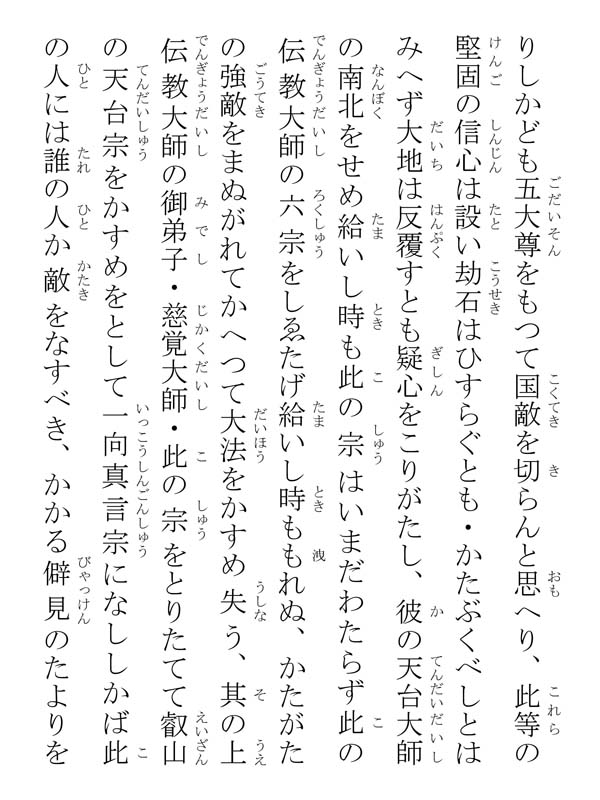 りしかども五大尊をもつて国敵を切らんと思へり、此等の
堅固の信心は設い劫石はひすらぐとも・かたぶくべしとは
みへず大地は反覆すとも疑心をこりがたし、彼の天台大師
の南北をせめ給いし時も此の宗はいまだわたらず此の
伝教大師の六宗をしゑたげ給いし時ももれぬ、かたがた
の強敵をまぬがれてかへつて大法をかすめ失う、其の上
伝教大師の御弟子・慈覚大師・此の宗をとりたてて叡山
の天台宗をかすめをとして一向真言宗になししかば此
の人には誰の人か敵をなすべき、かかる僻見のたよりを